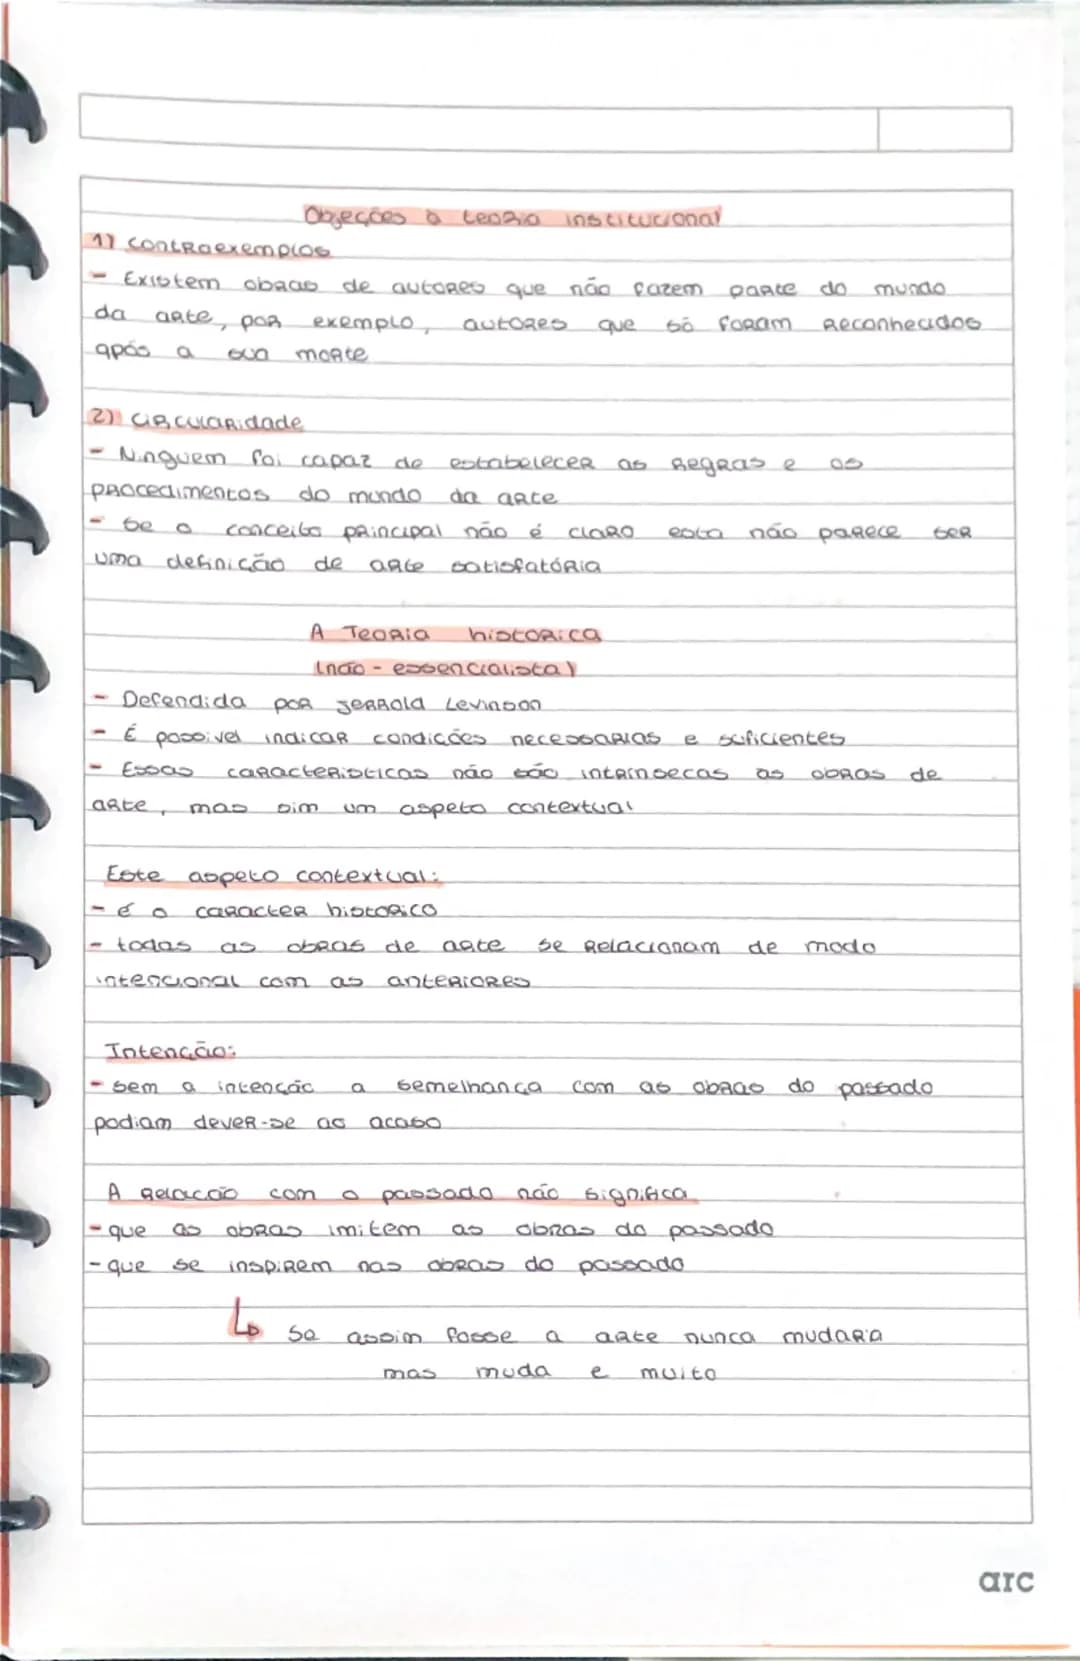 Objeções à teoria institucional
1) Contraexemplos
- Existem obras de autores que não fazem parte do mundo
da arte, por exemplo, autores que só foram reconhecidos
após a sua morte
2) Circularidade
- Ninguem foi capaz de estabelecer as regras e os
procedimentos do mundo da arte
- Se o conceito principal não é claro esta não parece ser
uma definição de arte satisfatória
A Teoria historica
(não - essencialista)
- Defendida por Jerrold Levinson
- É possivel indicar condições necessarias e suficientes
- Essas caracteristicas não são intrinsecas as obras de
arte, mas sim um aspeto contextual
Este aspeto contextual:
- é o caracter historico
- todas as obras de arte se relacionam de modo
intencional com as anteriores
Intenção:
- sem a intenção a semelhança com as obras do passado
podiam dever-se ao acaso
A relacão com o passado não significa
- que as obras imitem as obras do passado
- que se inspirem nas obras do passado
↳ Se assim fosse a arte nunca mudaria
mas muda e muito
arc